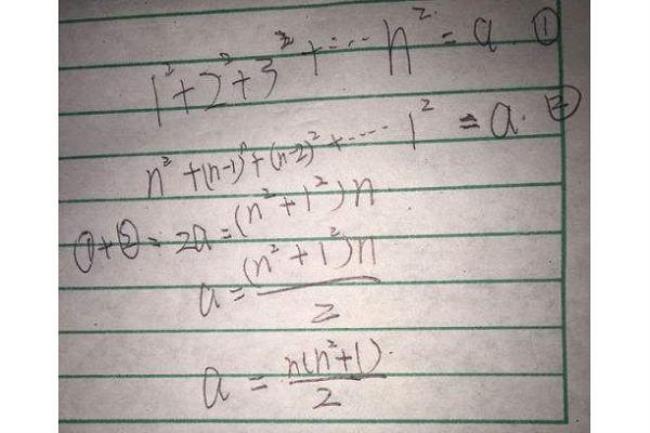 1²+2²+3²+…n²=a ①
n²+(n-1)²+(n-2)²+……1²=a. ②
①+②=2a=(n²+1²)n
a=(n²+1²)n/2
a=n(n²+1)/2.